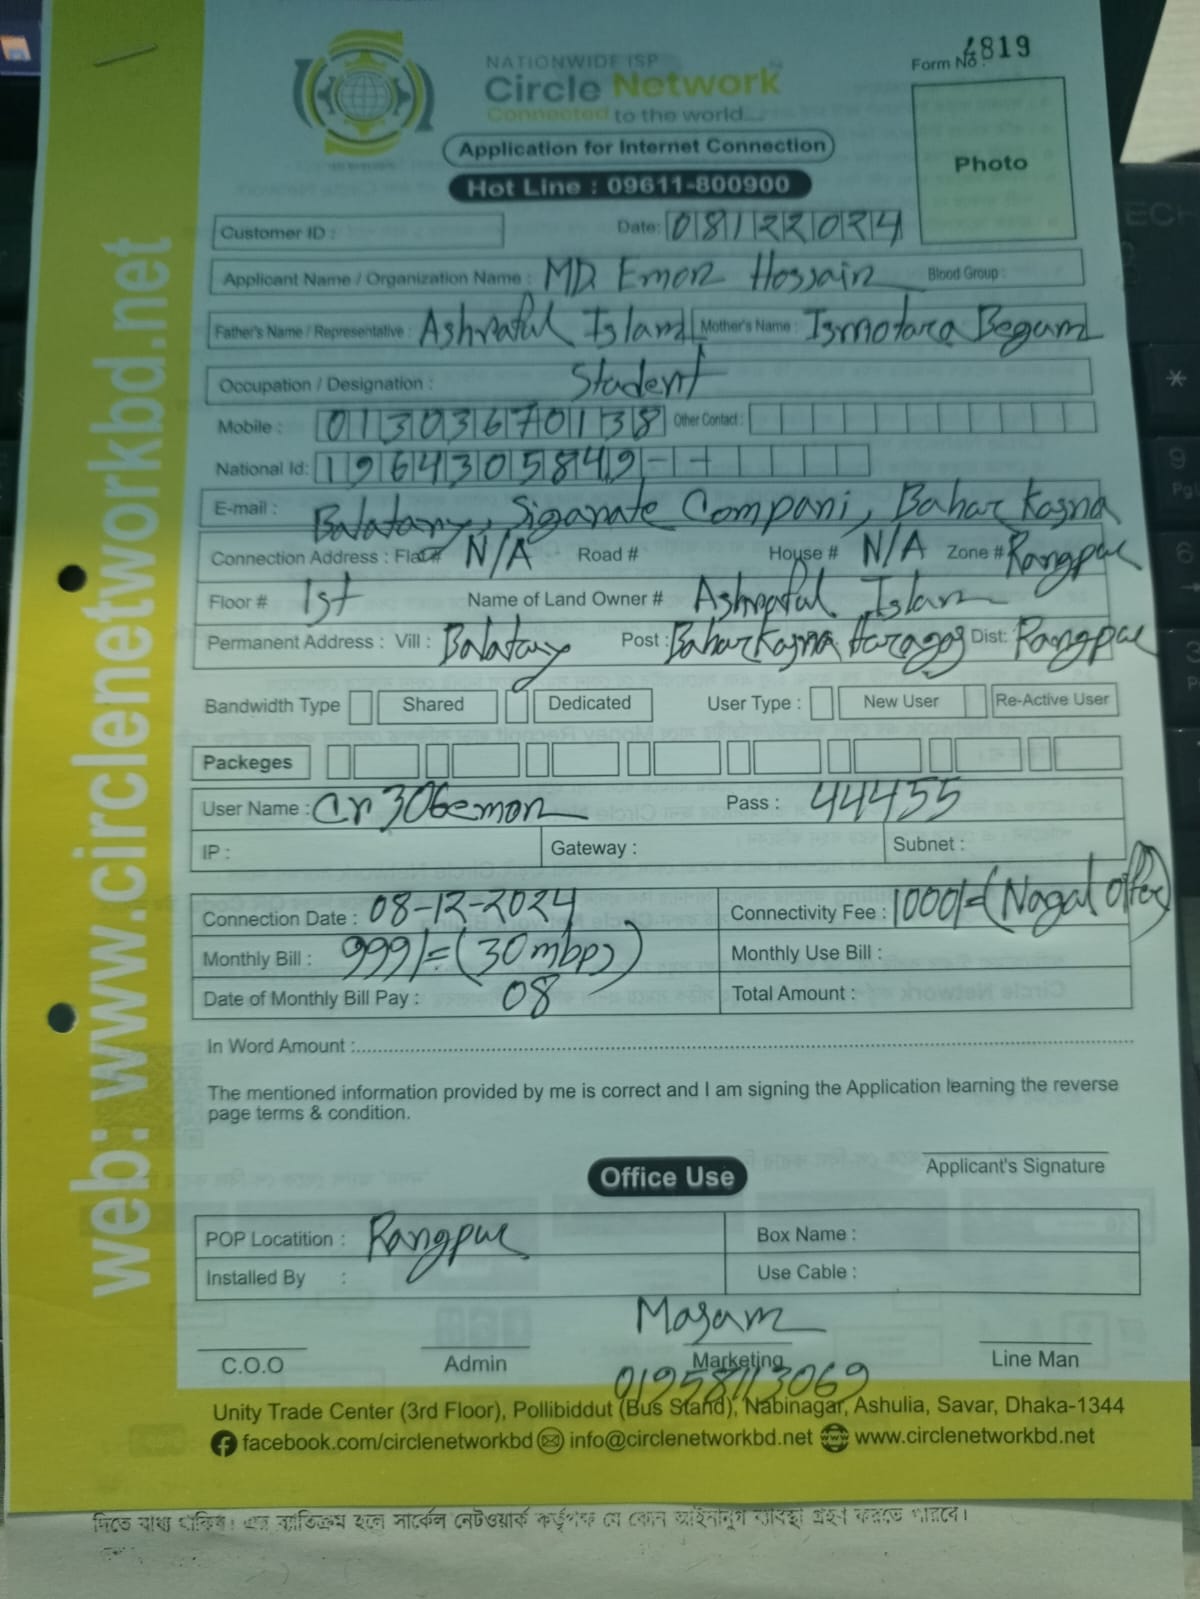 NATIONWIDE ISP
Circle Network
Connected to the world...
Form No : 4819
Application for Internet Connection
Hot Line : 09611-800900
Photo
Customer ID :
Date: 08122024
Applicant Name / Organization Name : MD Emon Hossain Blood Group :
Father's Name / Representative : Ashraful Islam Mother's Name : Ismotara Begum
Occupation / Designation : Student
Mobile : 01303670138 Other Contact :
National Id: 1964305849
E-mail : Balatary, Sigarate Compani, Bahar Kasna
Connection Address : Flat # N/A Road # House # N/A Zone # Rangpur
Floor # 1st Name of Land Owner # Ashraful Islam
Permanent Address : Vill : Balatary Post : Bahar Kasna Haragas Dist: Rangpur
Bandwidth Type Shared Dedicated User Type : New User Re-Active User
Packeges
User Name : cr306emon Pass : 44455
IP : Gateway : Subnet :
Connection Date : 08-12-2024 Connectivity Fee : 1000/= (Nagad offer)
Monthly Bill : 999/= (30 mbps) Monthly Use Bill :
Date of Monthly Bill Pay : 08 Total Amount :
In Word Amount :
The mentioned information provided by me is correct and I am signing the Application learning the reverse
page terms & condition.
Applicant's Signature
Office Use
POP Locatition : Rangpur Box Name :
Installed By : Use Cable :
Masam
C.O.O Admin Marketing Line Man
01958113069
Unity Trade Center (3rd Floor), Pollibiddut (Bus Stand), Nabinagar, Ashulia, Savar, Dhaka-1344
facebook.com/circlenetworkbd info@circlenetworkbd.net www.circlenetworkbd.net
web: www.circlenetworkbd.net
দিতে বাধ্য থাকিব। এর ব্যতিক্রম হলে সার্কেল নেটওয়ার্ক কর্তৃপক্ষ যে কোন আইনানুগ ব্যবস্থা গ্রহণ করতে পারবে।